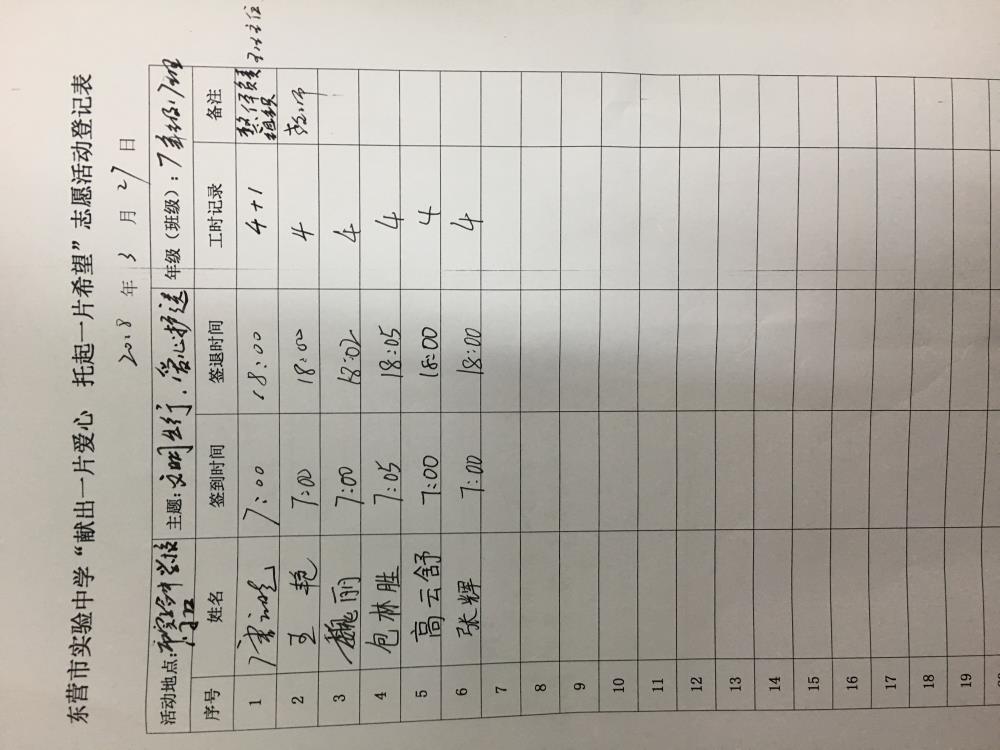 东营市实验中学“献出一片爱心 托起一片希望”志愿活动登记表
2018 年 3 月 27 日
活动地点: 市实验中学校门口 主题: 文明出行.爱心护送 年级（班级）: 7年级17班
序号 姓名 签到时间 签退时间 工时记录 备注
1 7:00 18:00 4+1
2 王艳 7:00 18:00 4
3 魏丽 7:00 18:02 4
4 包林胜 7:05 18:05 4
5 高云舒 7:00 18:00 4
6 张辉 7:00 18:00 4
7
8
9
10
11
12
13
14
15
16
17
18
19